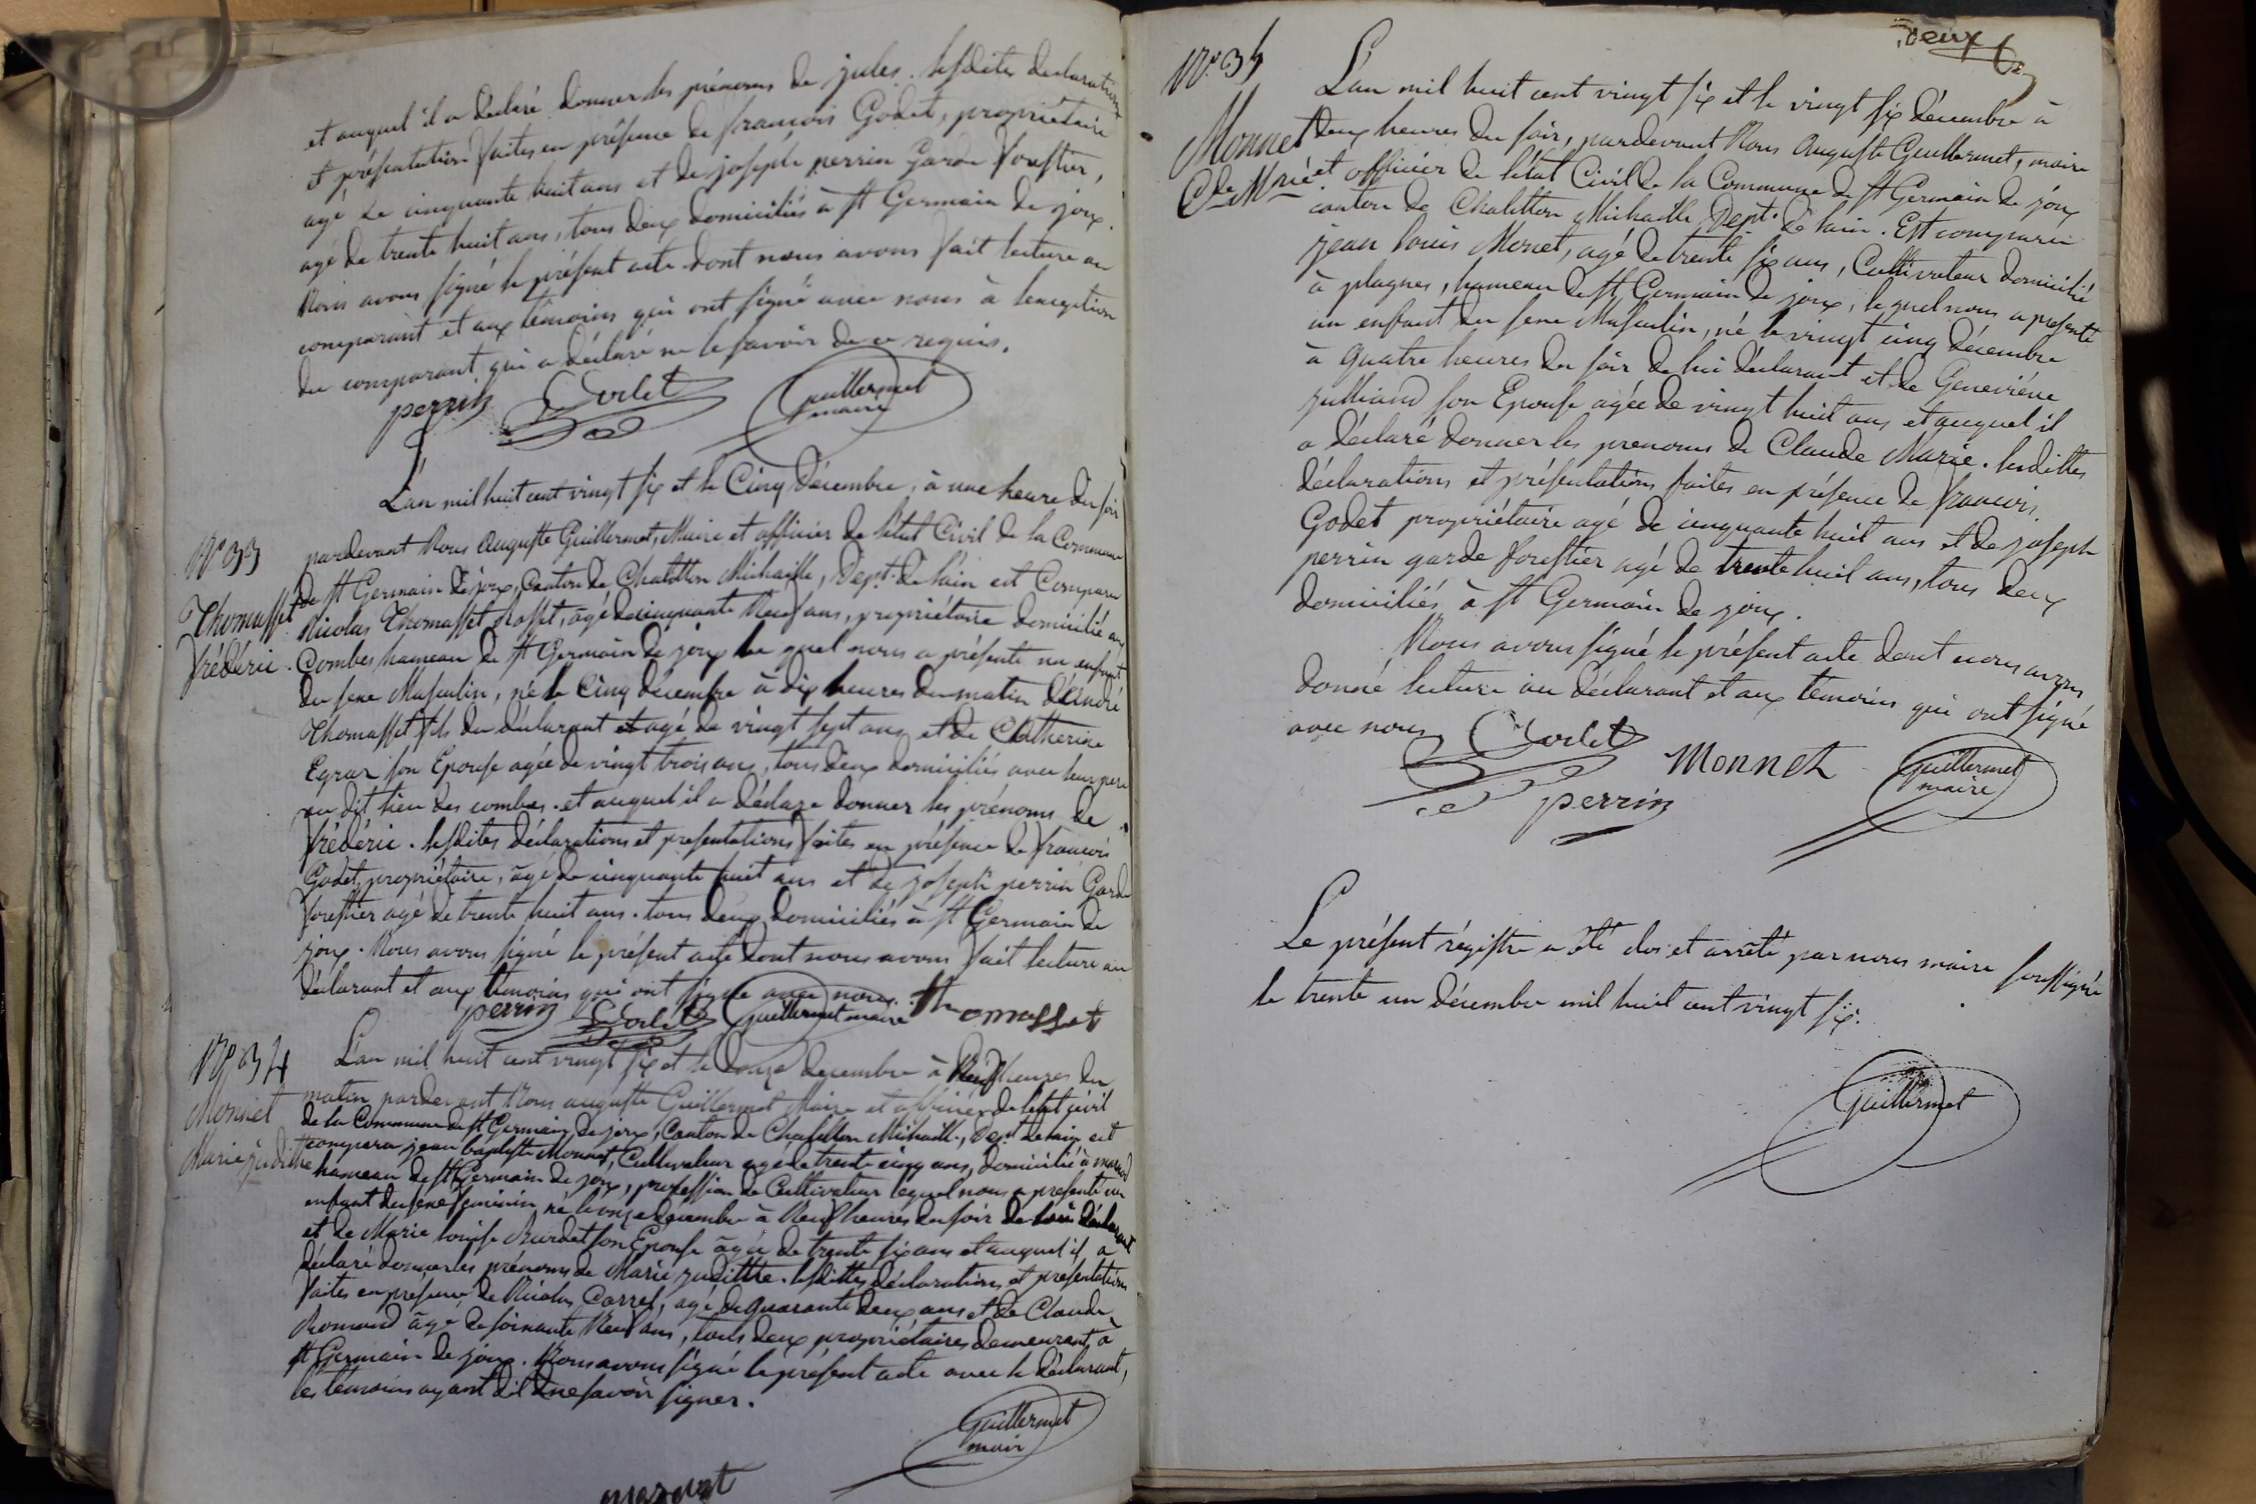 et auquel il a déclaré donner les prénoms de jules. lesdites declarations
et présentations faites en présence de françois Godet, propriétaire
agé de cinquante huit ans et de joseph perrin Garde forestier,
agé de trente huit ans, tous deux domiciliés à St Germain de joux.
Nous avons signé le présent acte dont nous avons fait lecture au
comparant et aux témoins qui ont signé avec nous à l'exception
du comparant qui a déclaré ne le savoir de ce requis.
perrin Godet Guillermet
maire
L'an mil huit cent vingt six et le Cinq Décembre, à une heure du soir
N° 33 pardevant Nous Auguste Guillermet, Maire et officier de l'état Civil de la Commune
de St Germain de joux, Canton de Chatillon Michaille, Dept. de l'ain est Comparu
Thomasset Nicolas Thomasset Rosset, agé de cinquante Neuf ans, propriétaire domicilié aux
frédéric. Combes hameau de St Germain de joux le quel nous a présenté un enfant
du sexe Masculin, né le Cinq décembre à dix heures du matin d'André
Thomasset fils du déclarant et agé de vingt sept ans et de Catherine
Egraz son Epouse agée de vingt trois ans, tous deux domiciliés avec leur pere
au dit lieu des combes. et auquel il a déclaré donner les prénoms de
frédéric. lesdites déclarations et presentations faites en présence de françois
Godet, propriétaire, agé de cinquante huit ans et de joseph perrin Garde
forestier agé de trente huit ans. tous deux domiciliés à St Germain de
joux. Nous avons signé le présent acte dont nous avons fait lecture au
déclarant et aux témoins qui ont signé avec nous.
perrin Godet Guillermet maire Thomasset
N° 34 L'an mil huit cent vingt six et le Douze decembre à Neuf heures du
Monnet matin pardevant Nous auguste Guillermet Maire et officier de l'etat civil
de la Commune de St Germain de joux, Canton de Chatillon Michaille, Dept de l'ain est
Marie judithe comparu jean baptiste Monnet, Cultivateur agé de trente cinq ans, domicilié à
hameau de St Germain de joux, profession de Cultivateur lequel nous a presenté un
enfant du sexe feminin né le onze decembre à Neuf heures du soir de lui déclarant
et de Marie louise Burdet son Epouse agée de trente six ans et auquel il a
déclaré donner les prénoms de Marie judithe. lesdittes déclarations et présentations
faites en présence de Nicolas Carrel, agé de quarante deux ans et de Claude
Romand âgé de soixante Neuf ans, tous deux propriétaires demeurant à
St Germain de joux. Nous avons signé le présent acte avec le déclarant,
les témoins ayant dit de ne savoir signer.
Guillermet
maire
monnet
deux
N° 35 L'an mil huit cent vingt six et le vingt six décembre à
Monnet deux heures du soir, pardevant Nous Auguste Guillermet, maire
Cde Marie et officier de l'état Civil de la Commune de St Germain de joux
canton de Chatillon Michaille Dept. de l'ain. Est comparu
jean louis Monet, agé de trente six ans, Cultivateur domicilié
à plagnes, hameau de St Germain de joux, lequel nous a presenté
un enfant du sexe Masculin, né le vingt cinq décembre
à quatre heures du soir de lui déclarant et de Geneviéve
julliand son Epouse agée de vingt huit ans et auquel il
a déclaré donner les prenoms de Claude Marie. lesdittes
déclarations et présentations faites en présence de françois
Godet propriétaire agé de cinquante huit ans et de joseph
perrin garde forestier agé de trente huit ans, tous deux
domiciliés à St Germain de joux.
Nous avons signé le présent acte dont nous avons
donné lecture au déclarant et aux témoins qui ont signé
avec nous Godet Monnet Guillermet
maire
perrin
Le présent régistre a été clos et arrêté par nous maire soussigné
le trente un décembre mil huit cent vingt six.
Guillermet